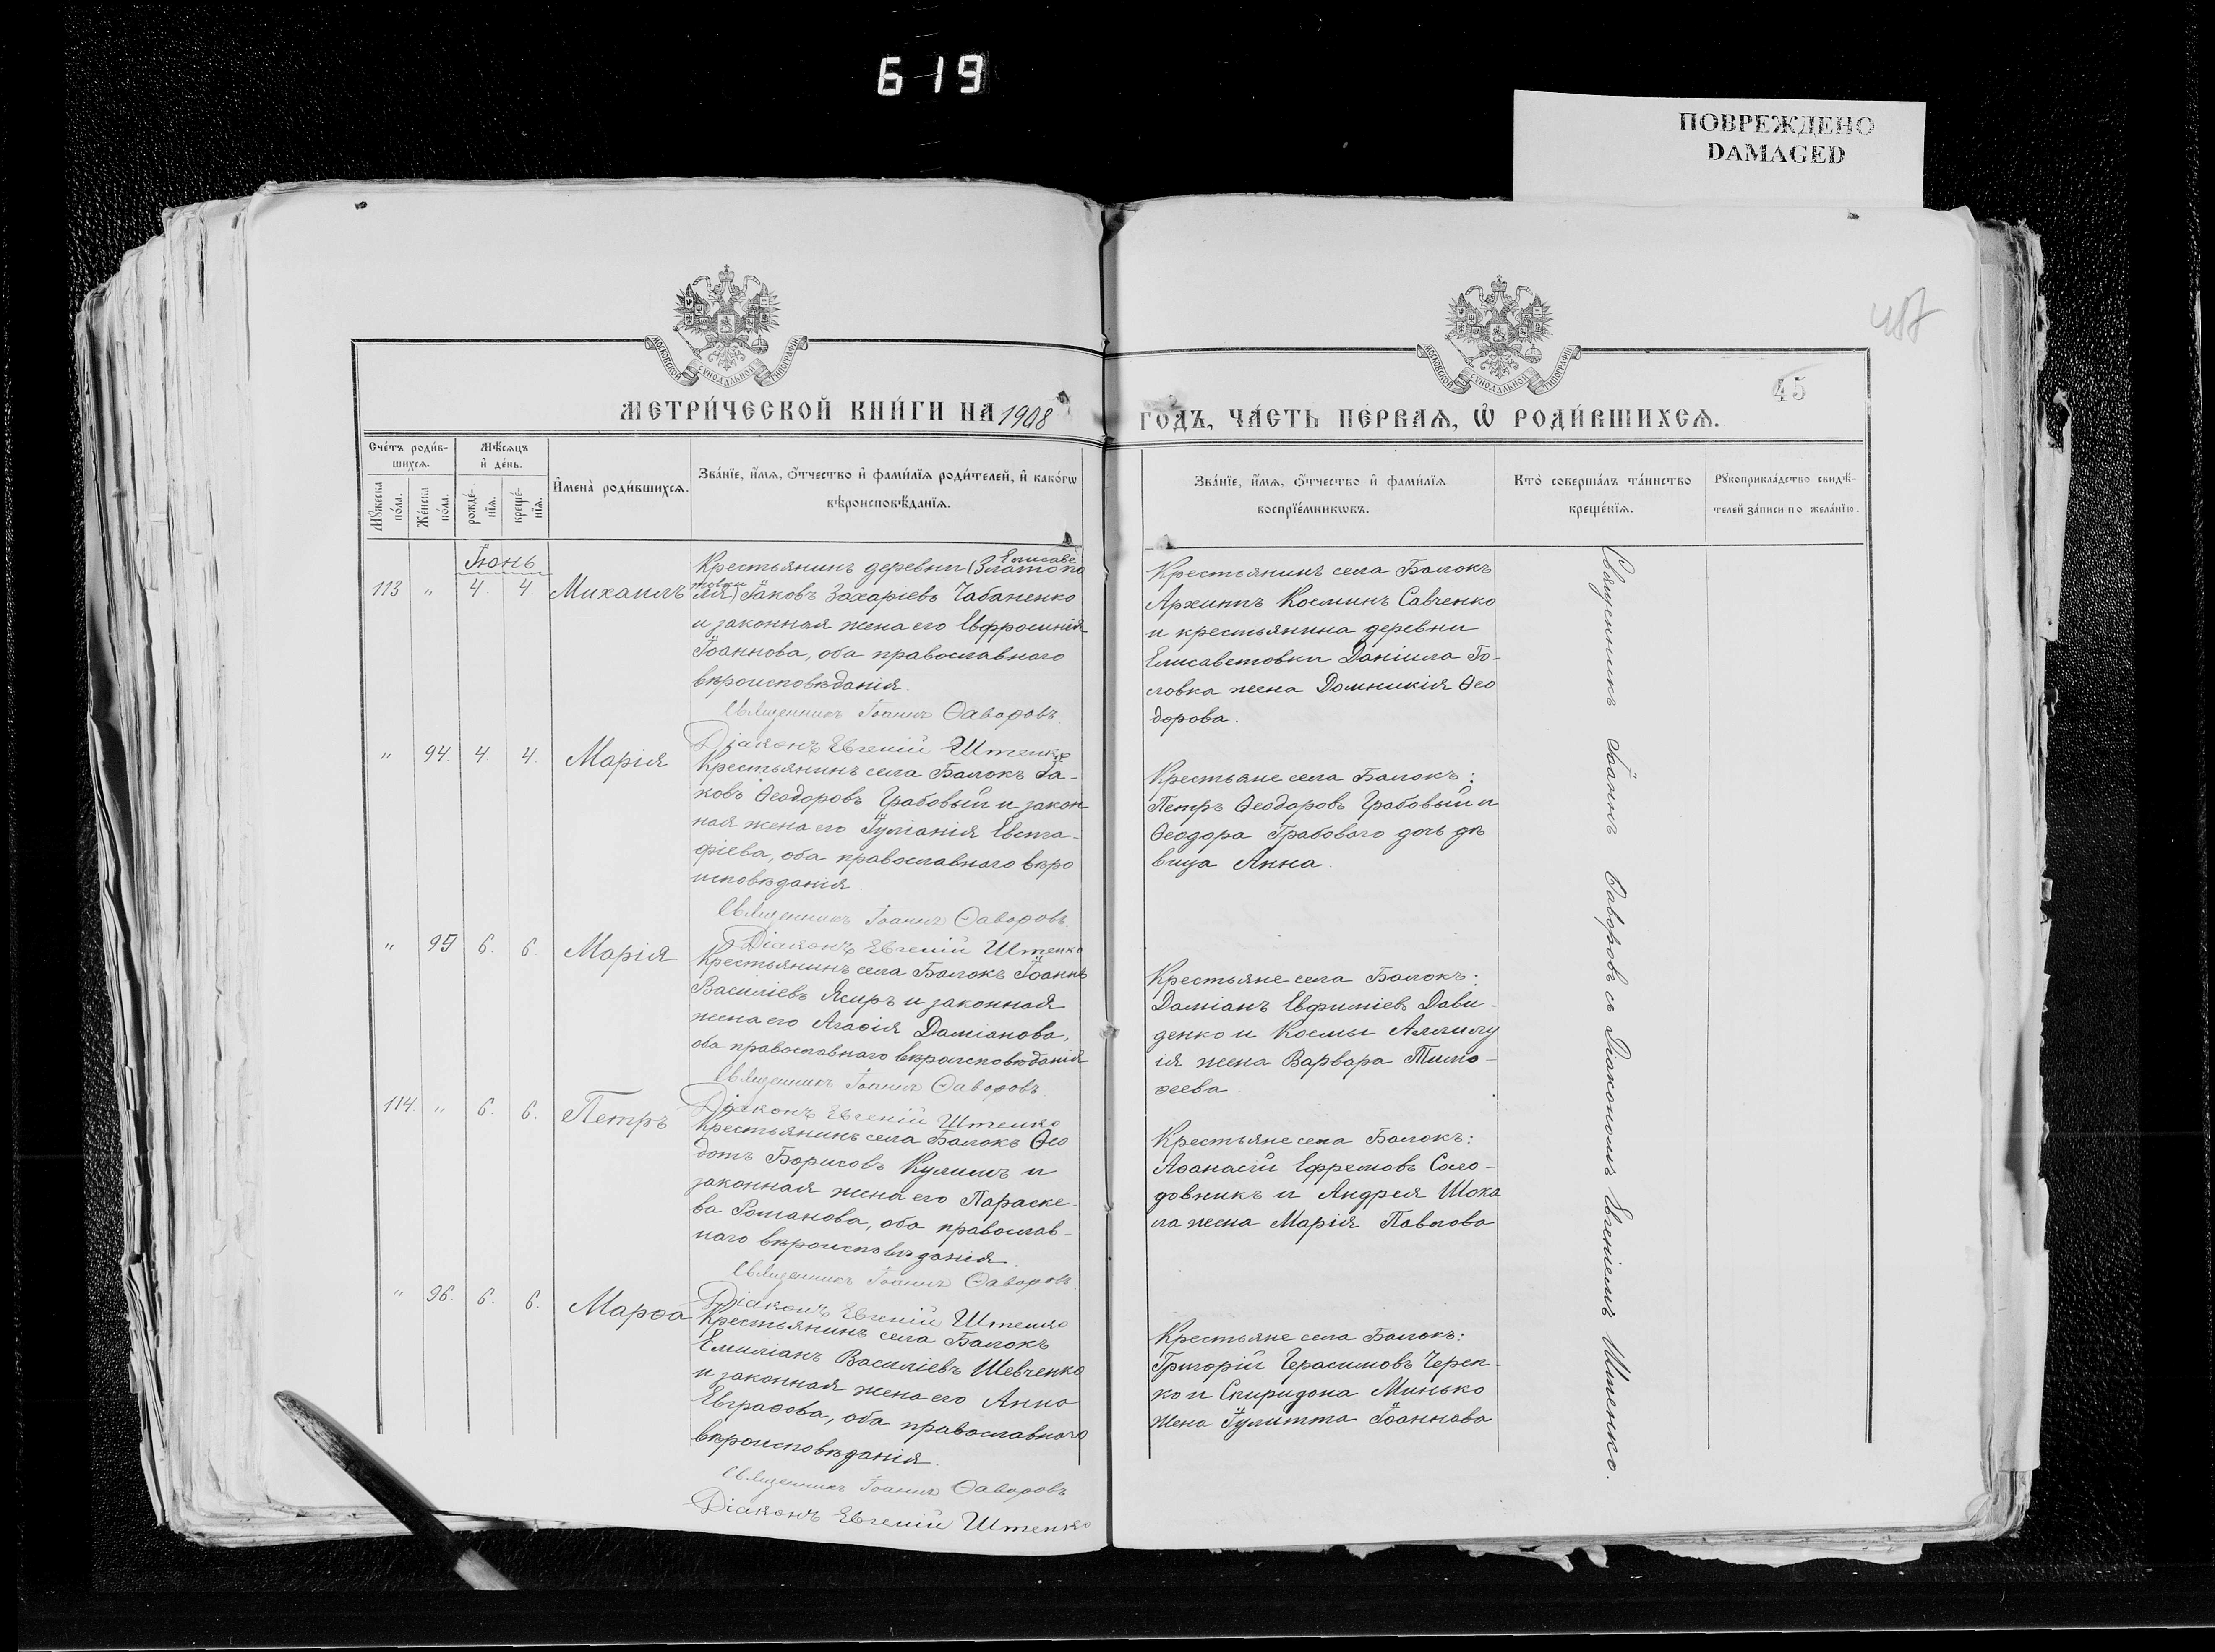 619
ПОВРЕЖДЕНО
DAMAGED
МОСКОВСКОЙ СѴНОДАЛЬНОЙ ТИПОГРАФІИ
МОСКОВСКОЙ СѴНОДАЛЬНОЙ ТИПОГРАФІИ
45
МЕТРИ́ЧЕСКОЙ КНИ́ГИ НА 1908
ГОДЪ, ЧА́СТЬ ПЕ́РВАѦ, Ѡ҆ РОДИ́ВШИХСѦ.
Сче́тъ роди́в-
шихсѧ.
Мѣ́сѧцъ
и҆ де́нь.
Мꙋ́жеска по́ла.
Же́нска по́ла.
рожде́-нїѧ.
креще́-нїѧ.
И҆мена̀ роди́вшихсѧ.
Зва́нїе, и҆́мѧ, ѻ҆́тчество и҆ фами́лїѧ роди́телей, и҆ како́гѡ
вѣроисповѣ́данїѧ.
Зва́нїе, и҆́мѧ, ѻ҆́тчество и҆ фами́лїѧ
воспрїе́мникѡвъ.
Кто̀ соверша́лъ та́инство
креще́нїѧ.
Рꙋкоприкла́дство свидѣ́-
телей за́писи по жела́нїю.
Іюнь
113 " 4. 4. Михаилъ
Елисаве
Крестьянинъ деревни (Златопо
товки
ля) Іаковъ Захаріевъ Чабаненко
и законная жена его Евфросинія
Іоаннова, оба православнаго
вѣроисповѣданія.
Священникъ Іоаннъ Ѳаворовъ.
Діаконъ Евгеній Штепко
Крестьянинъ села Балокъ
Архиппъ Косминъ Савченко
и крестьянина деревни
Елисаветовки Даніила Го-
ловка жена Домникія Ѳео
дорова.
" 94. 4. 4. Марія
Крестьянинъ села Балокъ Іа-
ковъ Ѳеодоровъ Грабовый и закон
ная жена его Іуліанія Евста-
фіева, оба православнаго вѣро
исповѣданія.
Священникъ Іоаннъ Ѳаворовъ.
Діаконъ Евгеній Штепко
Крестьяне села Балокъ:
Петръ Ѳеодоровъ Грабовый и
Ѳеодора Грабоваго дочь дѣ
вица Анна.
" 95 6. 6. Марія
Крестьянинъ села Балокъ Іоаннъ
Василіевъ Ясиръ и законная
жена его Агаѳія Даміанова,
оба православнаго вѣроисповѣданія
Священникъ Іоаннъ Ѳаворовъ
Діаконъ Евгеній Штепко
Крестьяне села Балокъ:
Даміанъ Евфиміевъ Дави-
денко и Космы Аллилу
ія жена Варвара Тимо-
ѳеева
114. " 6. 6. Петръ
Крестьянинъ села Балокъ Ѳео
дотъ Борисовъ Кулишъ и
законная жена его Параске-
ва Романова, оба православ-
наго вѣроисповѣданія.
Священникъ Іоаннъ Ѳаворовъ
Діаконъ Евгеній Штепко
Крестьяне села Балокъ:
Аѳанасій Ефремовъ Соло-
довникъ и Андрея Шока
ла жена Марія Павлова
" 96. 6. 6. Марѳа
Крестьянинъ села Балокъ
Емиліанъ Василіевъ Шевченко
и законная жена его Анна
Евграфова, оба православнаго
вѣроисповѣданія.
Священникъ Іоаннъ Ѳаворовъ
Діаконъ Евгеній Штепко
Крестьяне села Балокъ:
Григорій Герасимовъ Череп-
ко и Спиридона Минько
жена Іулитта Іоаннова
Священникъ Іоаннъ Ѳаворовъ съ Діакономъ Евгеніемъ Штепко.